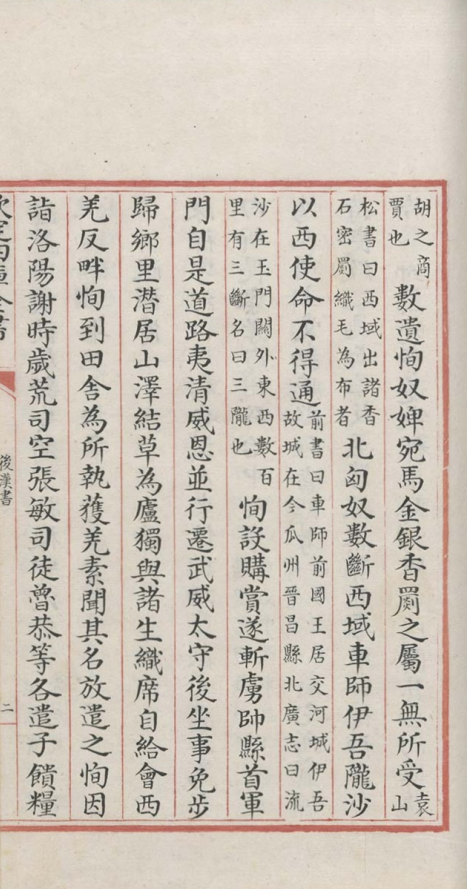 胡之商賈也數遺恂奴婢宛馬金銀香罽之屬一無所受袁山
松書曰西域出諸香石密罽織毛為布者北匈奴數斷西域車師伊吾隴沙
以西使命不得通前書曰車師前國王居交河城伊吾故城在今瓜州晉昌縣北廣志曰流
沙在玉門關外東西數百里有三斷名曰三隴也恂設購賞遂斬虜帥縣首軍
門自是道路夷清威恩並行遷武威太守後坐事免步
歸鄉里潛居山澤結草為廬獨與諸生織席自給會西
羌反畔恂到田舍為所執獲羌素聞其名放遣之恂因
詣洛陽謝時歲荒司空張敏司徒魯恭等各遣子饋糧
後漢書
二